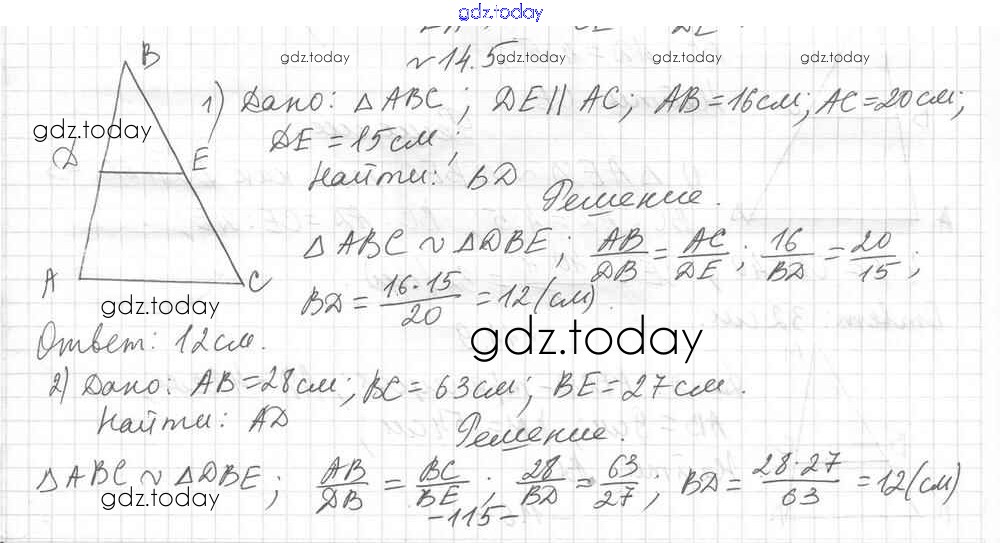 gdz.today
№14.5
gdz.today gdz.today gdz.today gdz.today
B
1) Дано: △ABC; DE || AC; AB = 16 см; AC = 20 см;
gdz.today
DE = 15 см;
D E
Найти: BD
Решение.
△ABC ~ △DBE; AB/DB = AC/DE; 16/BD = 20/15;
A C
gdz.today
BD = 16·15/20 = 12 (см).
gdz.today
Ответ: 12 см.
2) Дано: AB = 28 см; BC = 63 см; BE = 27 см.
Найти: AD
Решение.
△ABC ~ △DBE; AB/DB = BC/BE; 28/BD = 63/27; BD = 28·27/63 = 12 (см)
gdz.today
-115-